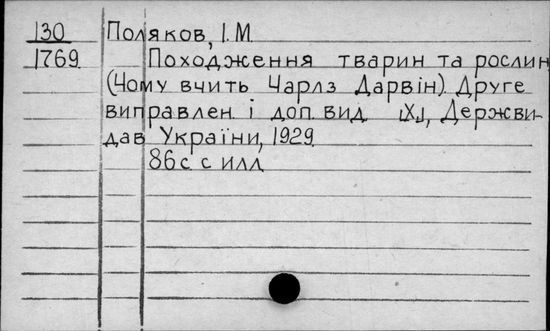 130 Поляков, І. М.
1769 Походження тварин та рослин
(Чому вчить Чарлз Дарвін). Друге
виправлен. і доп. вид. [Х.], Держви-
дав України, 1929.
86 с. с илл.